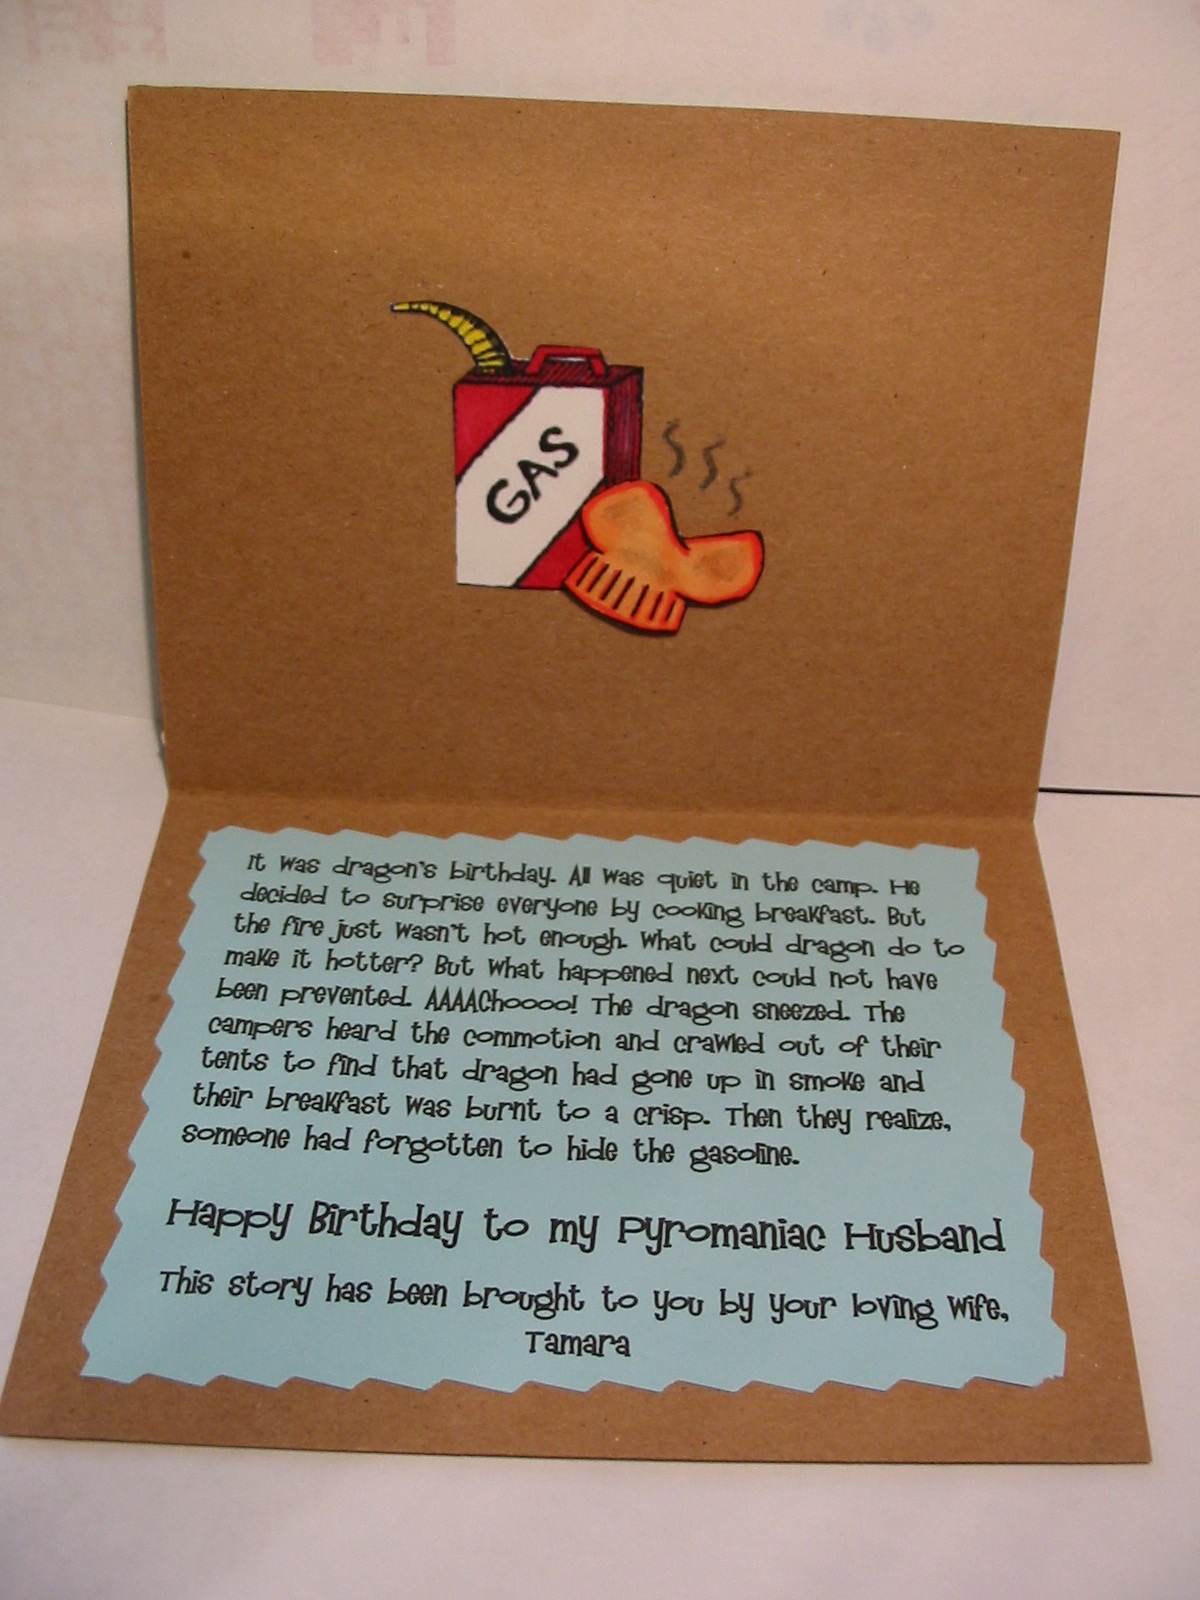 GAS
It was dragon's birthday. All was quiet in the camp. He
decided to surprise everyone by cooking breakfast. But
the fire just wasn't hot enough. What could dragon do to
make it hotter? But what happened next could not have
been prevented. AAAAChoooo! The dragon sneezed. The
campers heard the commotion and crawled out of their
tents to find that dragon had gone up in smoke and
their breakfast was burnt to a crisp. Then they realize,
someone had forgotten to hide the gasoline.
Happy Birthday to my Pyromaniac Husband
This story has been brought to you by your loving wife,
Tamara